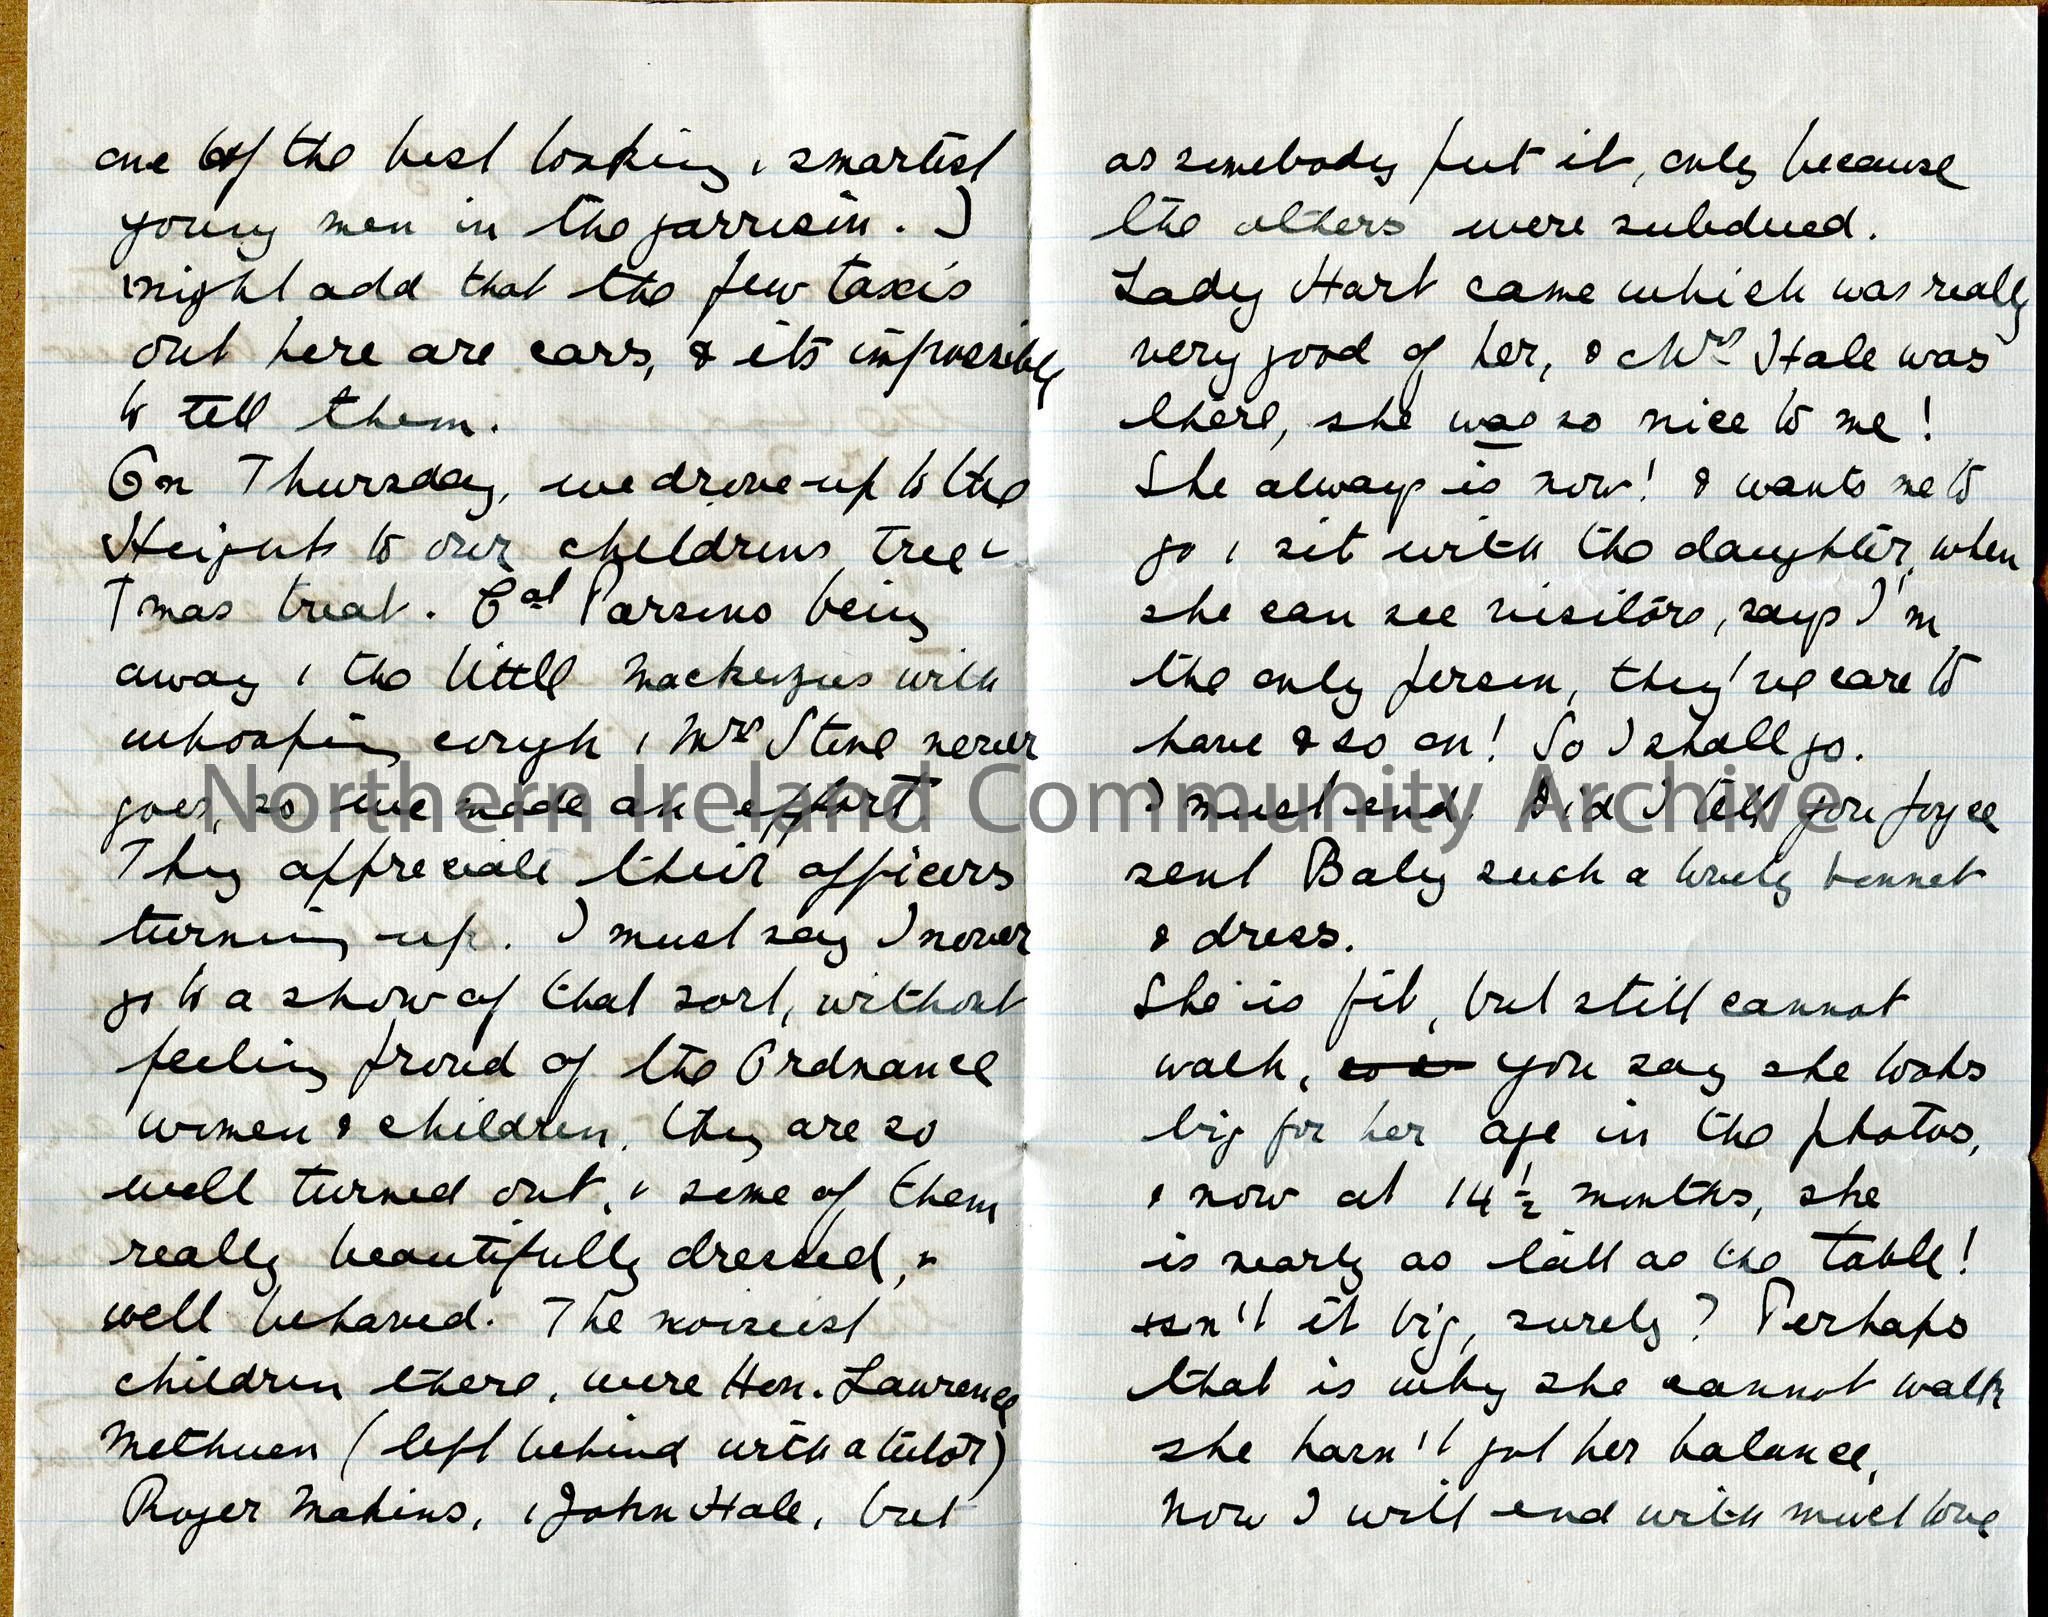 one of the best looking & smartest
young men in the garrison. I
might add that the few taxis
out here are cars, & its impossible
to tell them.
On Thursday, we drove up to the
Heights to our childrens tree &
Tmas treat. Col Parsons being
away & the little Mackenzies with
whooping cough & Mrs Stone never
goes, so we made an effort
They appreciate their officers
turning up. I must say I never
go to a show of that sort, without
feeling proud of the Ordnance
women & children, they are so
well turned out, & some of them
really beautifully dressed, &
well behaved. The noisiest
children there, were Hon. Lawrence
Methuen (left behind with a tutor)
Roger Makins, & John Hale, but
as somebody put it, only because
the others were subdued.
Lady Hart came which was really
very good of her, & Mrs Hale was
there, she was so nice to me!
She always is now! & wants me to
go & sit with the daughter, when
she can see visitors, says I'm
the only person, they've care to
have & so on! So I shall go.
I must end. Did I tell you Joyce
sent Baby such a lovely bonnet
& dress.
She is fit, but still cannot
walk, you say she looks
big for her age in the photos,
& now at 14½ months, she
is nearly as tall as the table!
isn't it big, surely? Perhaps
that is why she cannot walk
she hasn't got her balance,
Now I will end with much love
Northern Ireland Community Archive